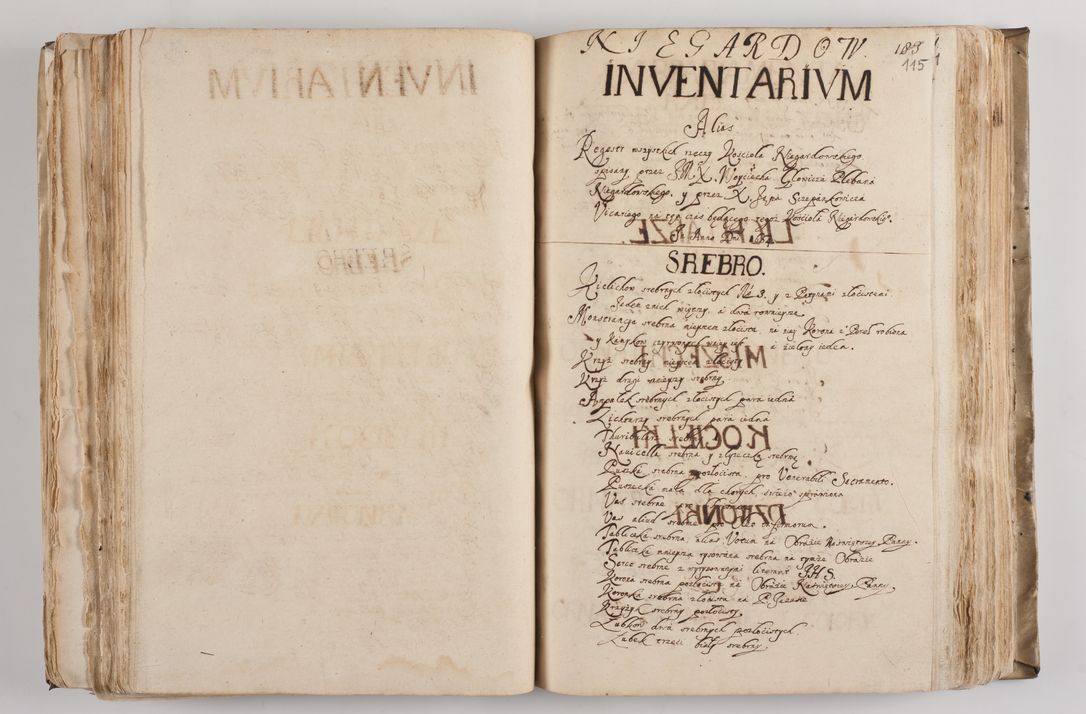 NIEGARDOW.
183
115
INVENTARIVM
Alias
Regestr wszystkich rzeczy Kosciola Niegardowskiego
spisany przez J.M.X. Woyciecha Plebana
Niegardowskiego. y przez X. Jana Szczepankowicza
Vicariego na ten czas będącego tegoz Kosciola Niegardowskie°.
Anno Dni
SREBRO.
Kielichow srebrnych złocistych No 3. y z Patynami złocistemi
Jeden znich więtszy, a dwa rownieysze
Monstrancya srebrna mieyscem złocista, na niey Korona z Pereł robiona
y czyrwonych a zielony ieden.
Krzyż srebrny mieyscem złocisty
Krzyż drugi mnieyszy srebrny.
Ampułek srebrnych złocistych para iedna
Lichtarzy srebrnych para iedna
Thuribularz srebrny
Navicella srebrna y złyszeczką srebrną
Puszka srebrna pozłocista, pro Venerabili Sacramento.
Puszecka mała dla chorych, swiezo sprawiona
Vas srebrne
Vas aliud srebrne pro Oleo infirmorum.
Tabliczka srebrna, alias Votum na Obrazie Naswiętszey Panny.
Tabliczka mnieysza rysowana srebrna na tymże Obrazie
Serce srebrne z wyrysowanymi literami JHS.
Korona srebrna pozłocista na Obrazie Naswiętszey Panny
Koronka srebrna złocista na P. Jezusie
Krzyżyk srebrny pozłocisty.
Kubkow dwa srebrnych pozłocistych.
Kubek trzeci biały srebrny.